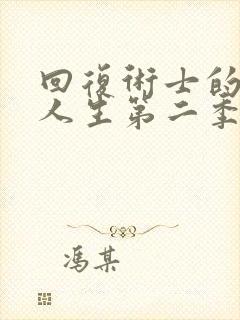 回復術士的
人生第二季
馮某